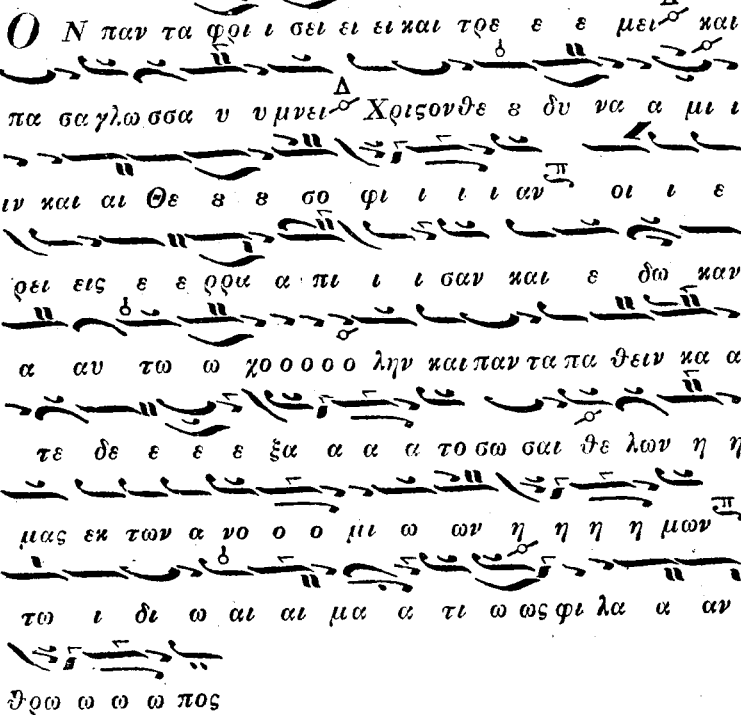 ΟΝ παν τα φρι ι σει ει ει και τρε ε ε μει Δ και
πα σα γλω σσα υ υ μνει Δ Χριϛον θε ȣ δυ να α μι ι
ιν και αι Θε ȣ ȣ σο φι ι ι ι αν π οι ι ε
ρει εις ε ε ρρα α πι ι ι σαν και ε δω καν
α αυ τω ω χο ο ο ο ο λην και παν τα πα θειν κα α
τε δε ε ε ε ξα α α α το σω σαι θε λων η η
μας εκ των α νο ο ο μι ω ων η η η η μων π
τω ι δι ω αι αι μα α τι ω ως φι λα α αν
θρω ω ω ω πος